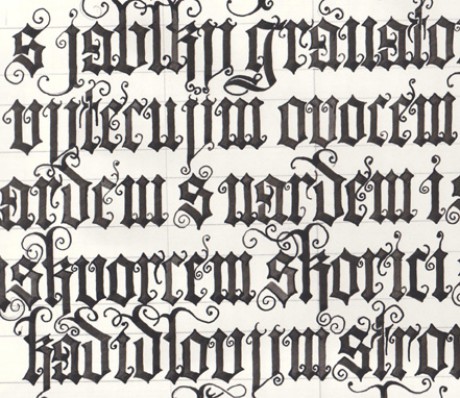 s jablky granato
vytecnym ovocem
ardem s nardem i s
uskvorcem skorici
kadidlovym stro